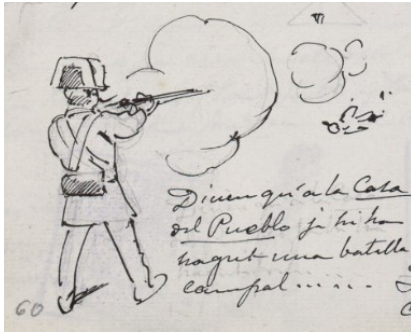 Diuen qu'a la Casa
del Pueblo ja hi ha
hagut una batalla
campal......
60